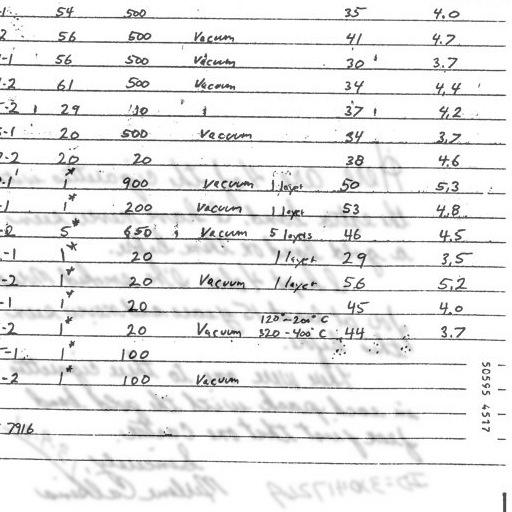 -1 54 500 35 4.0
2 56 500 Vacuum 41 4.7
-1 56 500 Vacuum 30 3.7
-2 61 500 Vacuum 34 4.4
-2 29 37 4.2
-1 20 500 Vacuum 34 3.7
-2 20 20 38 4.6
-1 1* 900 Vacuum 1 layer 50 5.3
-1 1* 200 Vacuum 1 layer 53 4.8
5* 650 Vacuum 5 layers 46 4.5
-1 1* 20 1 layer 29 3.5
-2 1* 20 Vacuum 1 layer 56 5.2
-1 1* 20 45 4.0
-2 1* 20 Vacuum 120°-200°C 320-400°C 44 3.7
-1 1* 100
-2 1* 100 Vacuum
7916
50595 4517